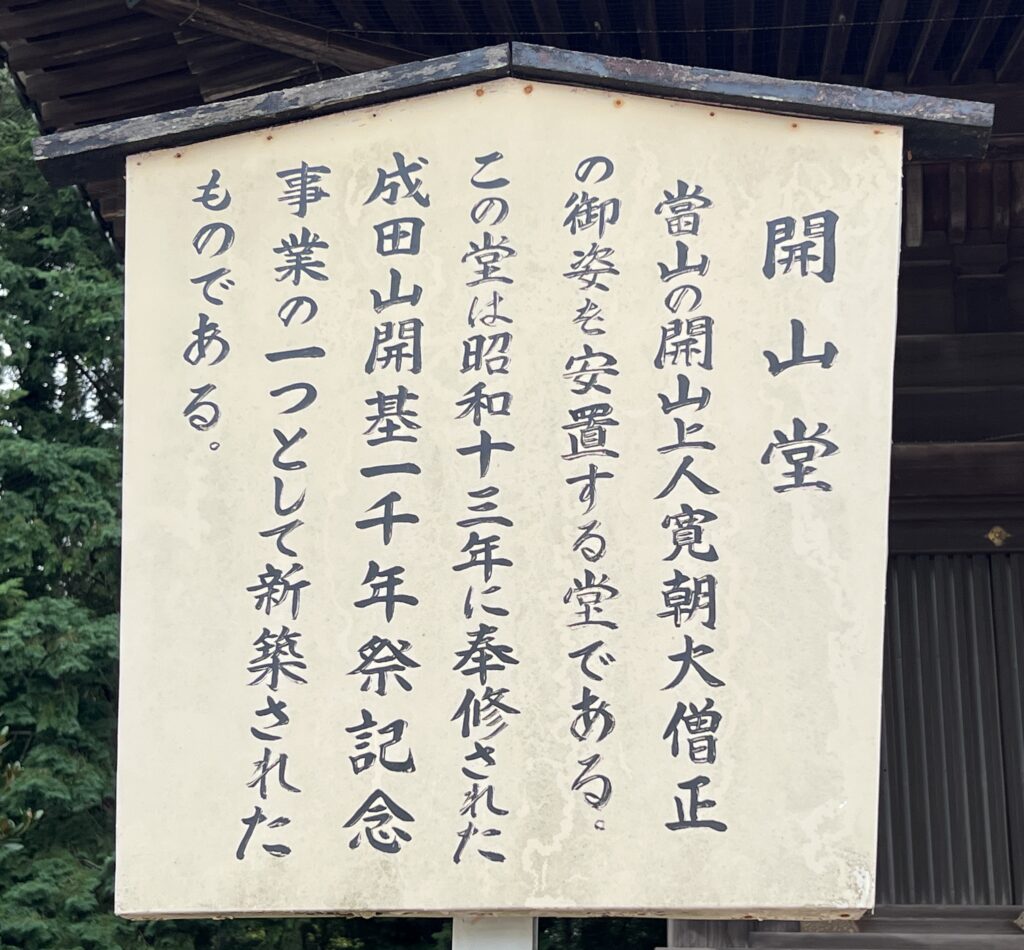 開山堂
當山の開山上人寛朝大僧正
の御姿を安置する堂である。
この堂は昭和十三年に奉修された
成田山開基一千年祭記念
事業の一つとして新築された
ものである。